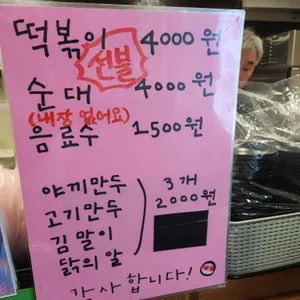 떡볶이 4000원
선불
순대 4000원
(내장 없어요)
음료수 1500원
야끼만두
고기만두
김말이
닭의알
3개
2000원
감사합니다!